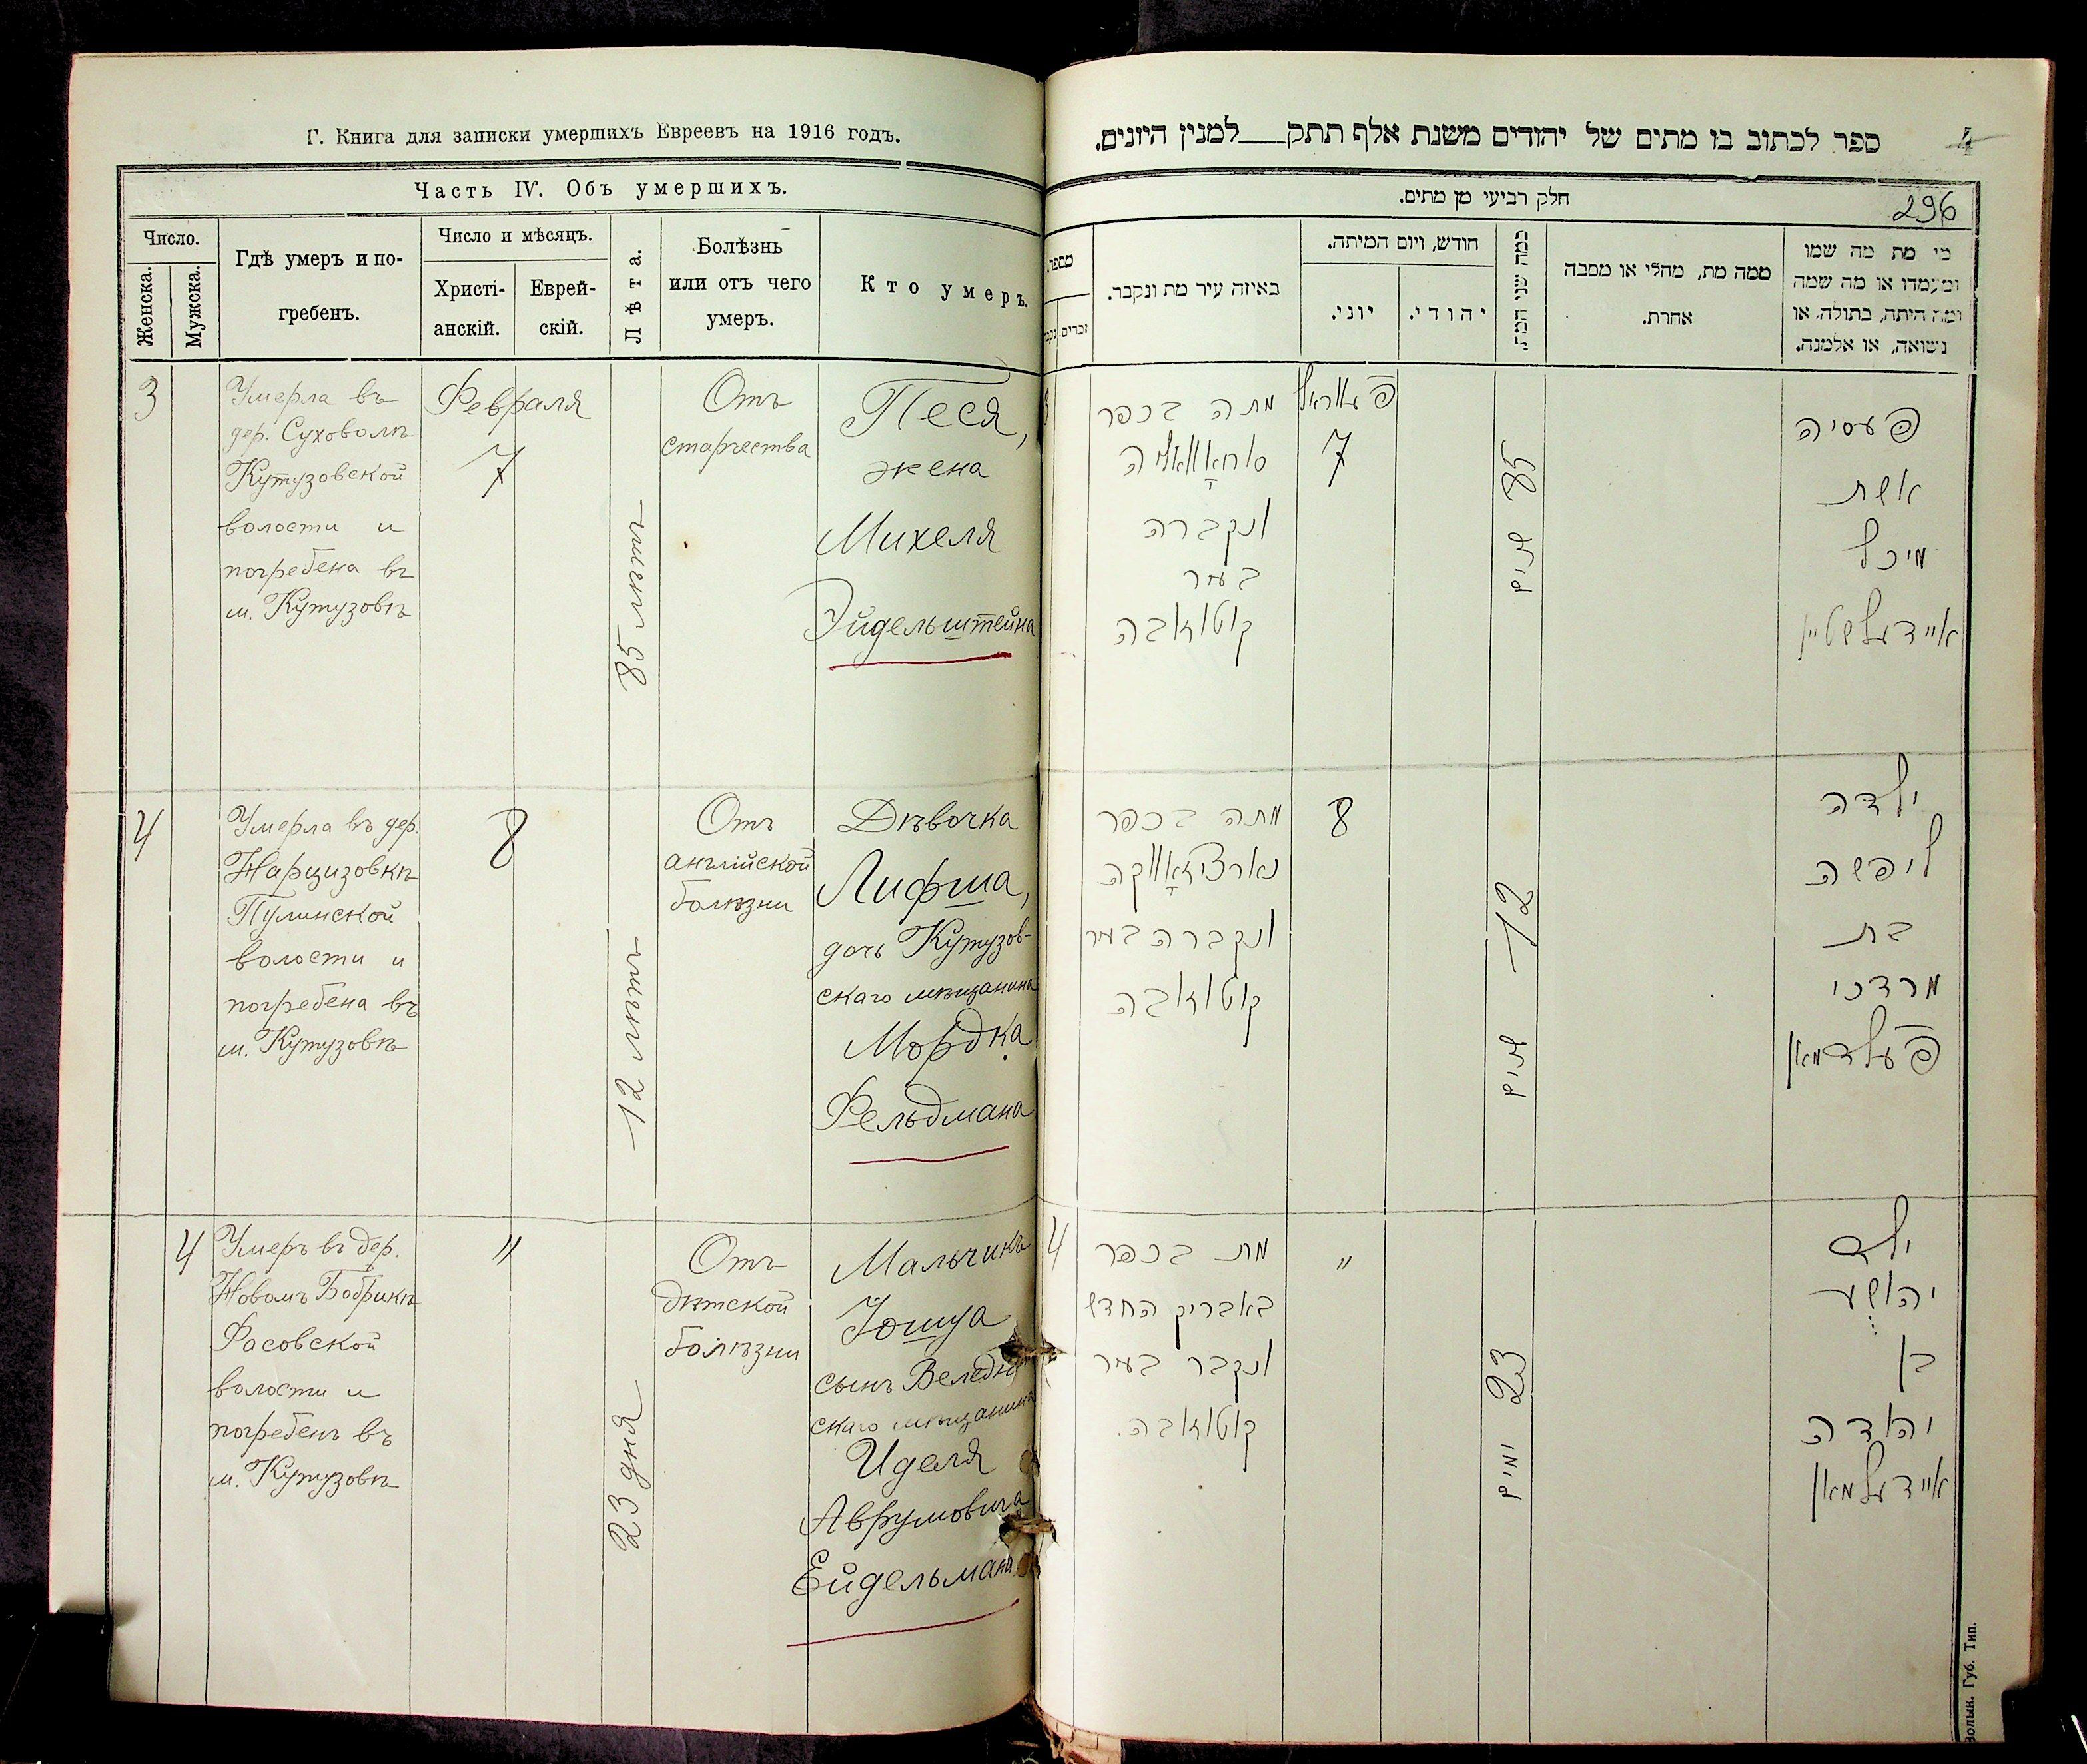 Г. Книга для записки умершихъ Евреевъ на 1916 годъ.
Часть IV. Объ умершихъ.
Число.
Женска.
Мужска.
Гдѣ умеръ и по-
гребенъ.
Число и мѣсяцъ.
Христі-
анскій.
Еврей-
скій.
Лѣта.
Болѣзнь
или отъ чего
умеръ.
Кто умеръ.
3
Умерла въ
дер. Суховолѣ
Кутузовской
волости и
погребена въ
м. Кутузовѣ
Февраля
7
85 лѣтъ
Отъ
старчества
Песя,
жена
Михеля
Эйдельштейна
4
Умерла въ дер.
Нарцизовкѣ
Пулинской
волости и
погребена въ
м. Кутузовѣ
8
12 лѣтъ
Отъ
англійской
болѣзни
Дѣвочка
Лифша,
дочь Кутузов-
скаго мѣщанина
Мордка
Фельдмана
4
Умеръ въ дер.
Новомъ Бобрикѣ
Фасовской
волости и
погребенъ въ
м. Кутузовѣ
"
23 дня
Отъ
дѣтской
болѣзни
Мальчикъ
Іошуа
сынъ
скаго мѣщанина
Иделя
Аврумовича
Ейдельмана
ספר לכתוב בו מתים של יהודים משנת אלף תתק למנין היונים.
4
חלק רביעי מן מתים.
296
מספר.
זכרים
באיזה עיר מת ונקבר.
חודש, ויום המיתה.
יוני.
יהודי.
כמה שני המת.
ממה מת, מחלי או מסבה
אחרת.
כי מת מה שמו
ומעמדו או מה שמה
ומה היתה, בתולה, או
נשואה, או אלמנה.
3
מתה בכפר
סוחאָוואליה
ונקברה
בעיר
קוטוזבה
פֿעווראל
7
85 שנים
פּעסיה
אשת
מיכל
איידעלשטיין
מתה בכפר
נארציזאָווקה
ונקברה בעיר
קוטוזבה
8
12 שנים
ילדה
ליפשה
בת
מרדכי
פֿעלדמאן
4
מת בכפר
באבריק החדש
ונקבר בעיר
קוטוזבה.
"
23 ימים
ילד
יהושע
בן
יהודה
איידעלמאן
Волын. Губ. Тип.